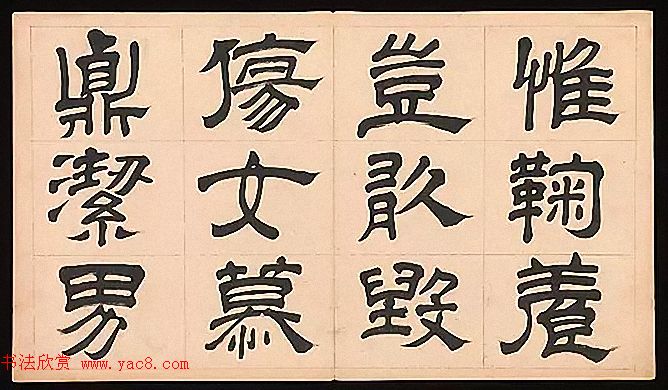 惟鞠養
豈敢毀
傷女慕
貞潔男
书法欣赏 www.yac8.com